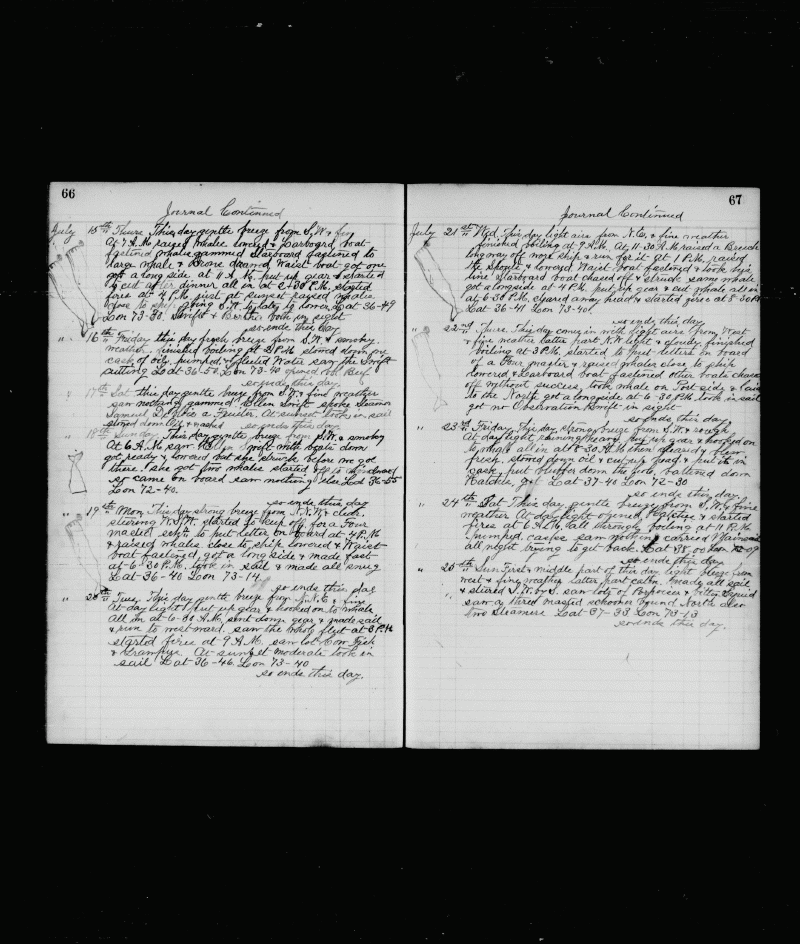 66
Journal Continued
July 15th Thurs. This day gentle breeze from S.W. & fog
At 7 A.M. raised whales lowered & Larboard boat
fastened whale gammed Starboard fastened to
large whale & drawed Waist boat got one
got a long side at 11 A.M. put up gear & started
to cut after dinner all in at 2-30 P.M. started
fires at 4 P.M. just at sunset raised whales
close to ship going S.W. to late to lower. Lat 36-49
Lon 73-30. Swift & both in sight
so ends this day.
" 16th Friday this day fresh breeze from S.W. & smoky
weather. finished boiling at 3 P.M. stowed down one
cask of oil, pumped Water saw the Swift
cutting Lat 36-50. Lon 73-40 opened bbl Beef
so ends this day.
17th Sat this day gentle breeze from S.W. & fine weather
saw nothing gammed Ellen Swift spoke Steamer
Samuel a Fruiter. At sunset took in sail
stowed down Oil & washed so ends this day.
18th Sunday This day gentle breeze from S.W. & smoky
At 6 A.M. saw Ellen Swift with boats down
got ready & lowered but she struck before we got
there. she got five whales started off to windward
so came on board saw nothing else Lat 36-55
Lon 72-40.
so ends this day
" 19th Mon. This day strong breeze from N.N.W. & clear.
steering W.S.W. started to keep off for a Four
masted to put letter on board at 4 P.M.
& raised whales close to ship lowered & Waist
boat fastened, got a long side & made fast
at 6-30 P.M. took in sail & made all snug
Lat 36-40 Lon 73-14.
so ends this day
" 20th Tues. This day gentle breeze from N.E. & fine
At day light put up gear & hooked on to whale
all in at 6-30 A.M. sent down gear & made sail
& run to westward. saw the whole fleet at 3 P.M.
started fires at 9 A.M. saw lot Cow Fish
& Grampus. At sunset moderate took in
sail Lat 36-46. Lon 73-40
so ends this day.
67
Journal Continued
July 21st Wed. This day light airs from N.E. & fine weather
finished boiling at 9 A.M. At 11-30 A.M. raised a Breech
long way off wore ship & run for it. At 1 P.M. raised
the Spouts & lowered Waist boat fastened & took his
line Starboard boat chased off & struck same whale
got alongside at 4 P.M. put up gear & cut whale all in
at 6-30 P.M. cleared away head & started fires at 8-30 P.M.
Lat 36-41 Lon 73-40.
so ends this day
" 22nd Thurs. This day comes in with light airs from West
& fine weather latter part N.W. light & cloudy finished
boiling at 3 P.M. started to put letters on board
of a Four master & raised whales close to ship
lowered & Larboard boat fastened other boats chased
off without success, took whale on Port side &
to the North got alongside at 6-30 P.M. took in sail
got no Observation Swift in sight
so ends this day
" 23rd Friday This day strong breeze from S.W. & rough
At day light raining heavy put up gear & hooked on
to whale all in at 8-30 A.M. then cleared & blew
fresh. stowed down oil & cut up head & put it in
cask, put blubber down the hole, battened down
Hatches, got Lat 37-40 Lon 72-30
so ends this day.
" 24th Sat This day gentle breeze from S.W. & fine
weather At day light opened Hatches & started
fires at 6 A.M. all through boiling at 11 P.M.
pumped casks saw nothing carried Mainsail
all night trying to get back. Lat 38.00 Lon 72-09
so ends this day
" 25th Sun First & middle part of this day light breeze from
west & fine weather latter part calm. made all sail
& steered S.W. by S. saw lots of Porpoises & bitten Squid
saw a three masted schooner bound North also
two Steamers Lat 37-33 Lon 73-13
so ends this day.